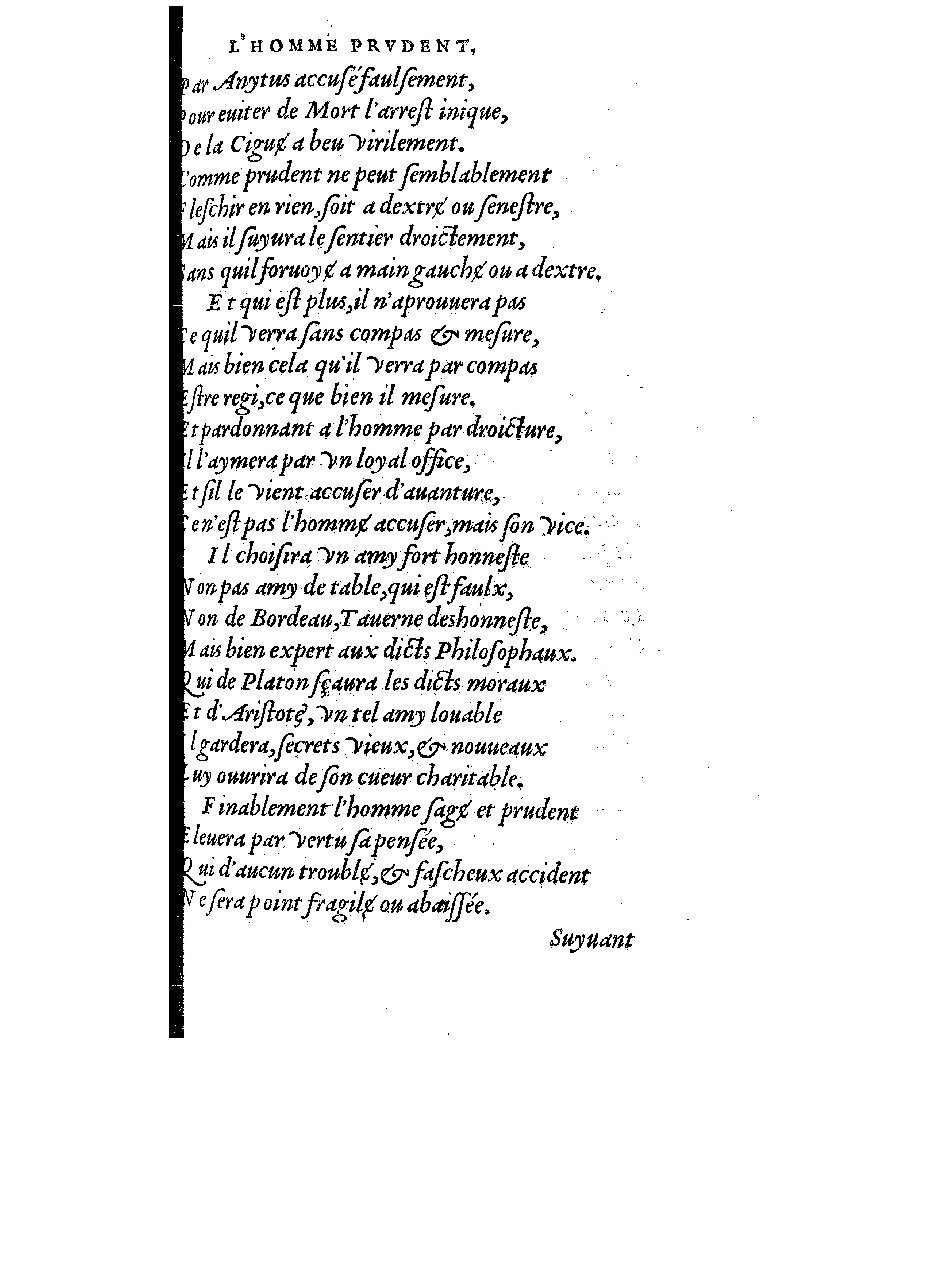 L'HOMME PRVDENT,
Par Anytus accuſé faulſement,
Pour euiter de Mort l'arreſt inique,
De la Ciguɇ a beu virilement.
Comme prudent ne peut ſemblablement
Fleſchir en rien, ſoit a dextrɇ ou ſeneſtre,
Mais il ſuyura le ſentier droictement,
Sans quil foruoyɇ a main gauchɇ ou a dextre.
Et qui eſt plus, il n'aprouuera pas
Ce quil verra ſans compas & meſure,
Mais bien cela qu'il verra par compas
Eſtre regi, ce que bien il meſure.
Et pardonnant a l'homme par droicture,
Il l'aymera par vn loyal office,
Et ſil le vient accuſer d'auanture,
Ce n'eſt pas l'hommɇ accuſer, mais ſon vice.
Il choiſira vn amy fort honneſte
Non pas amy de table, qui eſt faulx,
Non de Bordeau, Tauerne deshonneſte,
Mais bien expert aux dicts Philoſophaux.
Qui de Platon ſçaura les dicts moraux
Et d'Ariſtotɇ, vn tel amy louable
Il gardera, ſecrets vieux, & nouueaux
Luy ouurira de ſon cueur charitable.
Finablement l'homme ſagɇ et prudent
Eleuera par vertu ſa penſée,
Qui d'aucun troublɇ, & faſcheux accident
Ne ſera point fragilɇ ou abaiſſée.
Suyuant